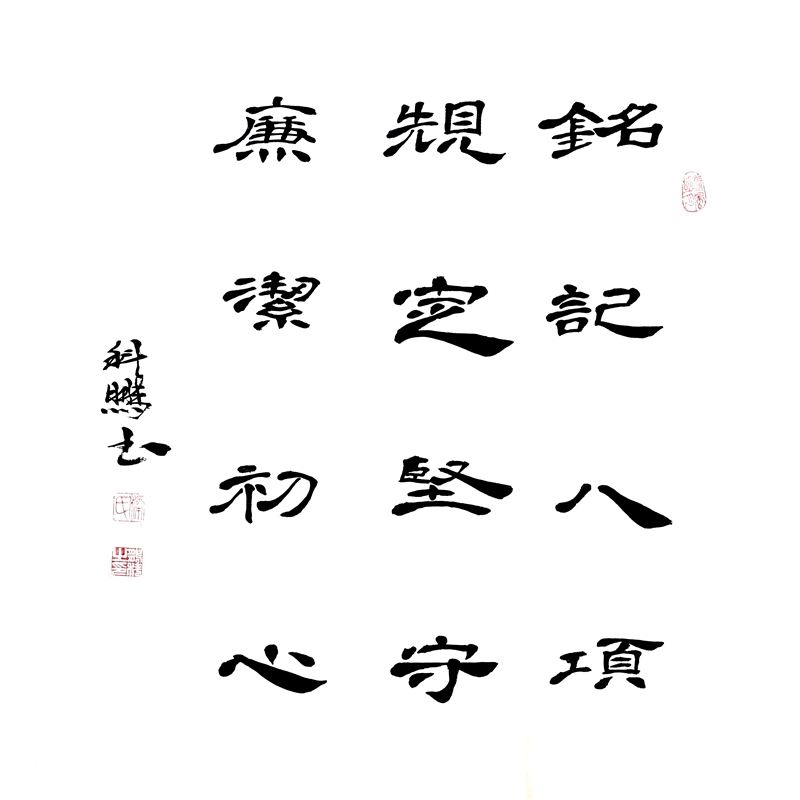 銘記八項
規定堅守
廉潔初心
科鵬书